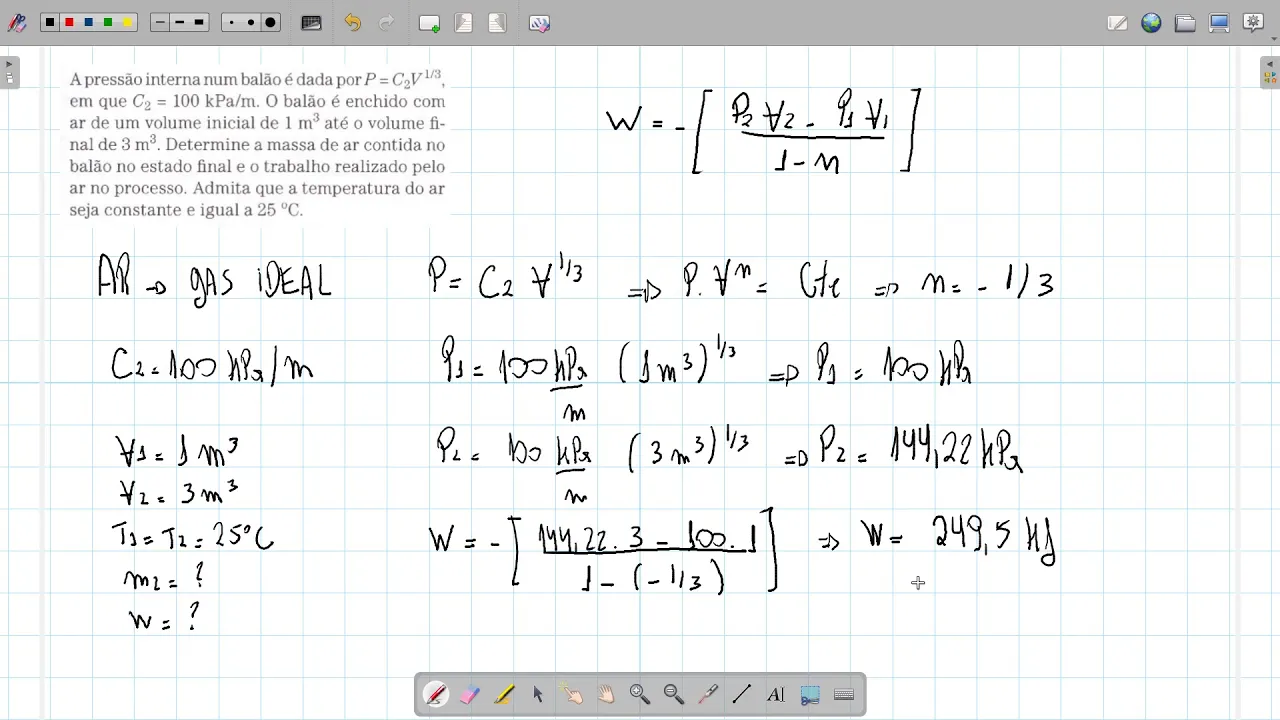 A pressão interna num balão é dada por P = C₂V^1/3,
em que C₂ = 100 kPa/m. O balão é enchido com
ar de um volume inicial de 1 m³ até o volume fi-
nal de 3 m³. Determine a massa de ar contida no
balão no estado final e o trabalho realizado pelo
ar no processo. Admita que a temperatura do ar
seja constante e igual a 25 ºC.
W = - [ (P₂ V₂ - P₁ V₁) / (1 - n) ]
AR → gAS iDEAL
P = C₂ V^1/3 ⇒ P. V^n = Cte ⇒ n = - 1/3
C₂ = 100 kPa/m
P₁ = 100 kPa/m (1 m³)^1/3 ⇒ P₁ = 100 kPa
P₂ = 100 kPa/m (3 m³)^1/3 ⇒ P₂ = 144,22 kPa
V₁ = 1 m³
V₂ = 3 m³
T₁ = T₂ = 25°C
m₂ = ?
W = ?
W = - [ (144,22 . 3 - 100 . 1) / (1 - (- 1/3)) ] ⇒ W = 249,5 kJ
AI